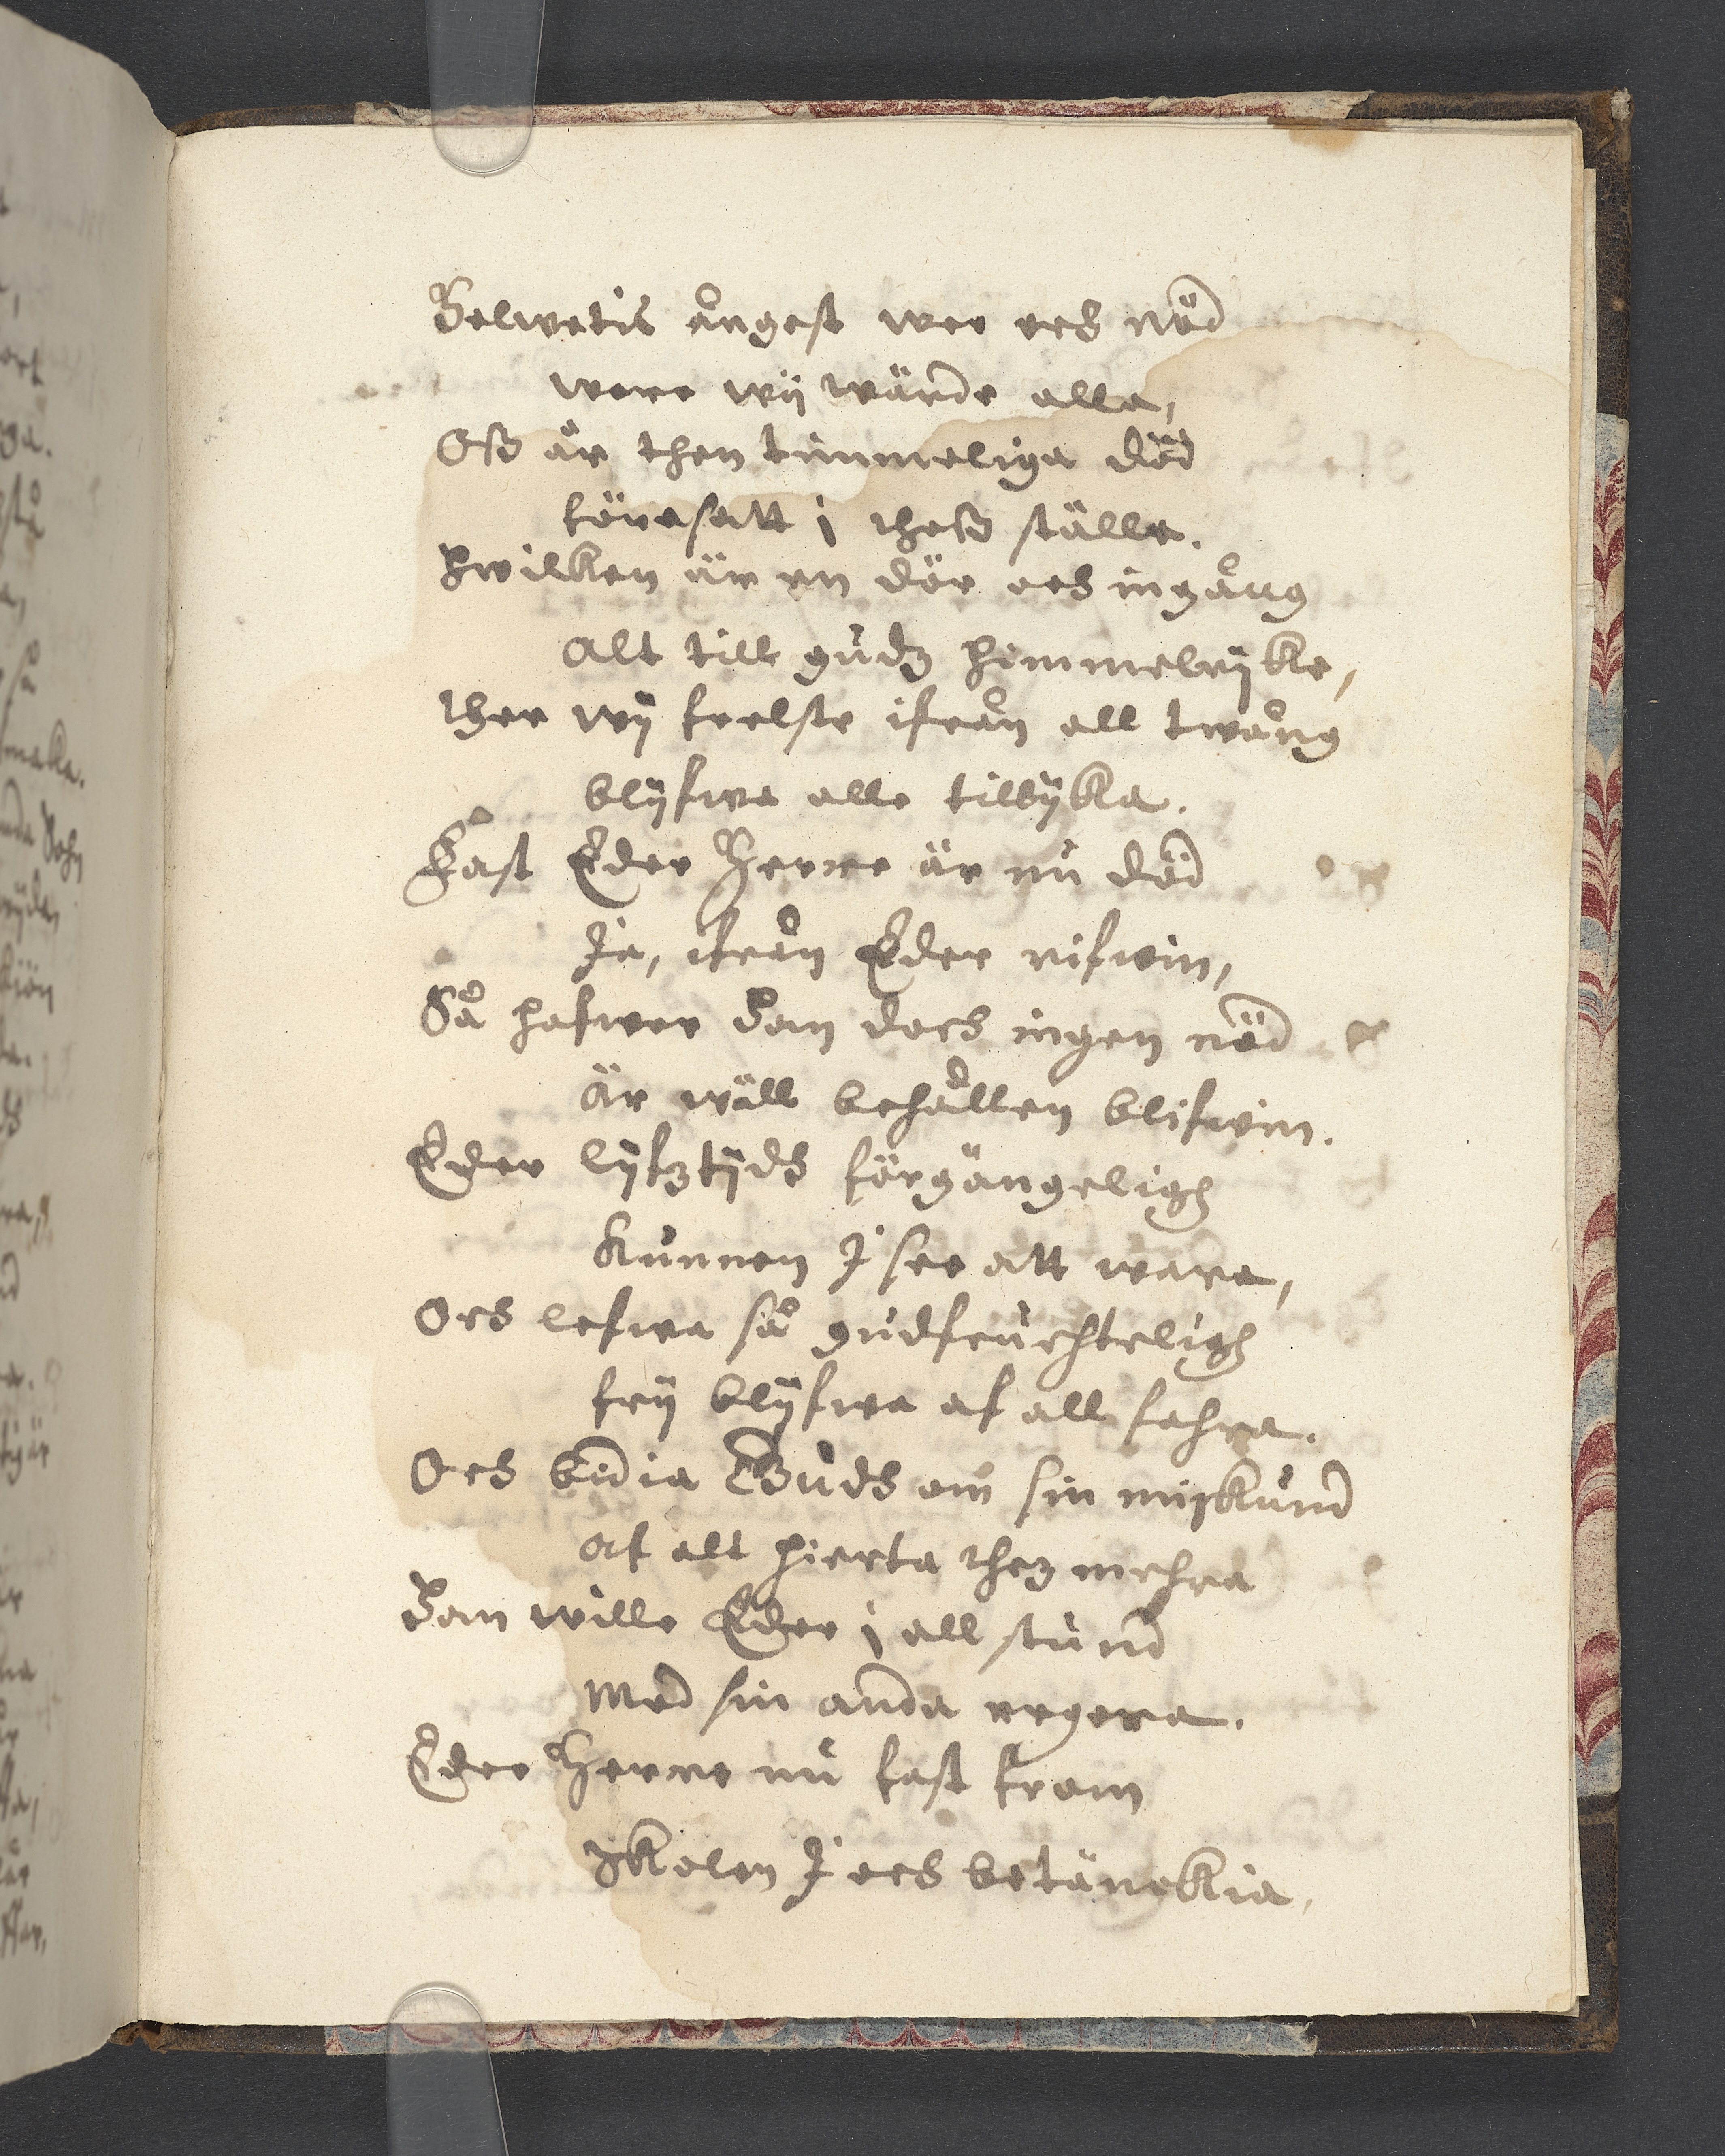 Helwetis ångest wee och nöd
were wij wärde alla,
Oß är then timmeliga död
föresatt i theß ställe.
Hwilken är en dör och ingång
Alt till gudz himmelrijke,
ther wij frelste ifrån all twång
blijfwa alle tillijka.
Fast Eder Herre är nu död
Ja, ifrån Eder rifwin,
Så hafwer Han doch ingen nöd
är wäll behållen blifwin.
Eder lijfztijds förgängeligh
Kunnen J see att wara,
Och lefwa så gudfruchteligh
frij blijfwa af all fahra.
Och bidia Gudh om sin miskund
af alt hierta thez mehra
Han wille Eder i all stund
Med sin anda regera.
Eder Herre nu fast from
Skolen J och betänckia,